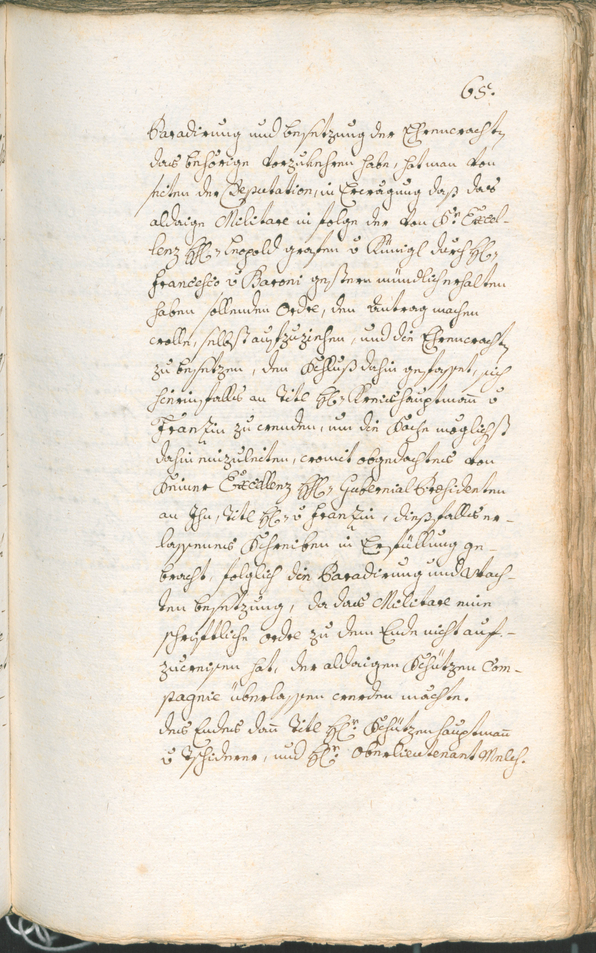 68.
Paradirung und besetzung der Ehrenwachten
das behörige vorzukehren habe, hat man von
seiten der Deputation, in Erwägung daß das
aldaige Militare in folge der von Sr Excel-
lenz H: Leopold grafen v Künigl durch H:
Francesco v Baroni gestern mündlich erhalten
haben sollenden Ordre, den Antrag machen
wolle, selbst aufzuziehen, und die Ehrenwachten
zu besetzen, den Schluß dahin gefasset, sich
hierinfalls an Titl H: Kreishauptmann v
Franzin zu wenden, um die Sache möglichst
dahin einzuleiten, womit obgedachtes von
Seiner Excellenz H: Gubernial Presidenten
an Ihn, Titl H: v Franzin, diesfalls er-
lassenes Schreiben in Erfüllung ge-
bracht, folglich die Paradirung und Wach-
ten besetzung, da das Militare eine
schriftliche Ordre zu dem Ende nicht auf-
zuweisen hat, der aldaigen Schützen Com-
pagnie überlassen werden möchte.
des Endes dan Titl Hr Schützenhauptman
v Tschiderer, und Hr Oberlieutenant Melch.